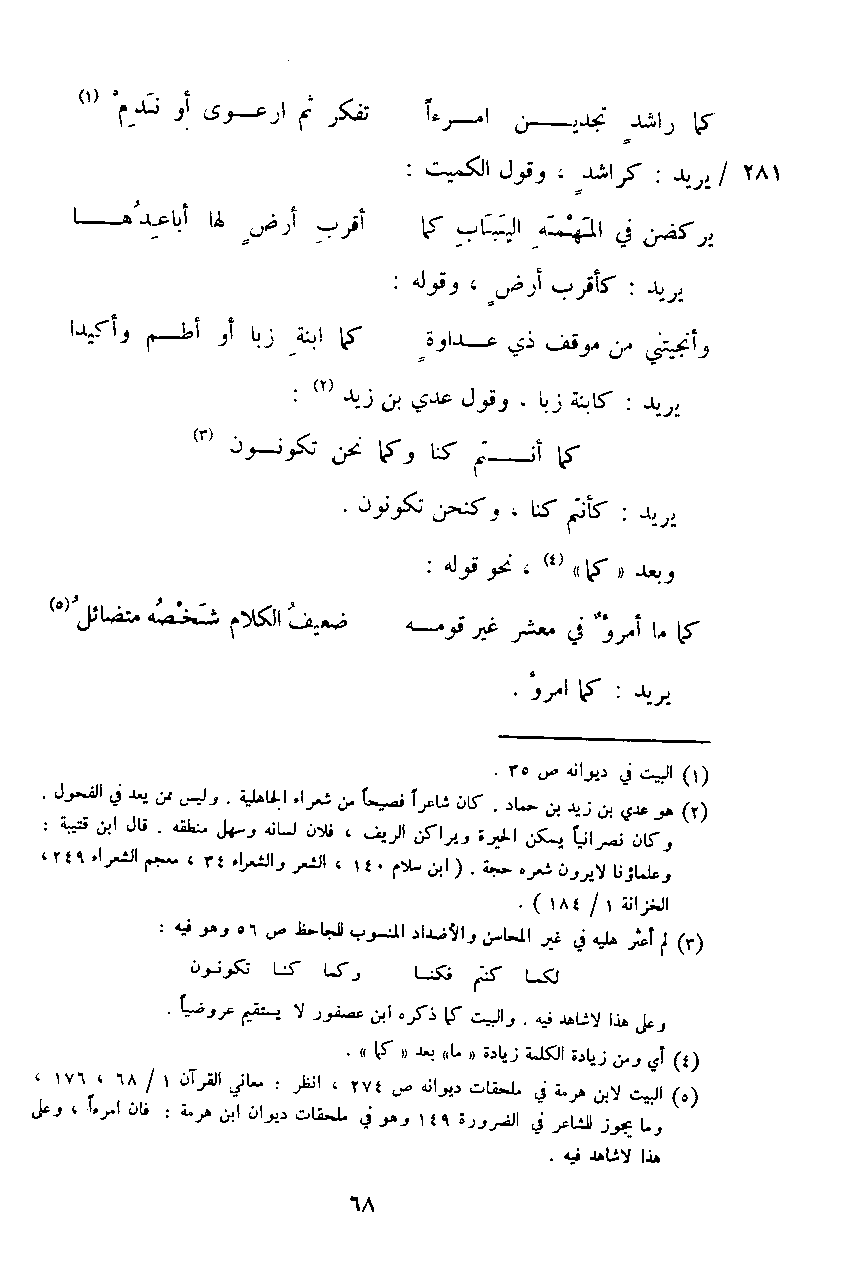 كما راشدٍ تجديـــن امـــرءاً تفكر ثم ارعـــوى أو نَدِمْ (١)
٢٨١ / يريد : كراشدٍ ، وقول الكميت :
يركضن في المَهْمَهِ اليَبَابِ كما أقربِ أرضٍ لها أباعِدُهـــا
يريد : كأقرب أرضٍ ، وقوله :
وأنجيتني من موقف ذي عـــداوةٍ كما ابنةِ زبا أو أطـــم وأكيدا
يريد : كابنة زبا . وقول عدي بن زيد (٢) :
كما أنـــتم كنا وكما نحن تكونـــون (٣)
يريد : كأنتم كنا ، وكنحن تكونون .
وبعد « كما » (٤) ، نحو قوله :
كما ما أمروٌ في معشر غير قومـــه ضعيفُ الكلام شَخْصُه متضائلُ (٥)
يريد : كما امروٌ .
(١) البيت في ديوانه ص ٣٥ .
(٢) هو عدي بن زيد بن حماد . كان شاعراً فصيحاً من شعراء الجاهلية . وليس ممن يعد في الفحول .
وكان نصرانياً يمكن الحيرة ويراكن الريف ، فلان لسانه وسهل منطقه . قال ابن قتيبة :
وعلماؤنا لايرون شعره حجة . ( ابن سلام ١٤٠ ، الشعر والشعراء ٣٤ ، معجم الشعراء ٢٤٩ ،
الخزانة ١ / ١٨٤ ) .
(٣) لم أعثر هليه في غير المحاسن والأضداد المنسوب للجاحظ ص ٥٦ وهو فيه :
لكمـا كنتم فكنـا وكما كنـا تكونـون
وعلى هذا لاشاهد فيه . والبيت كما ذكره ابن عصفور لا يستقيم عروضياً .
(٤) أي ومن زيادة الكلمة زيادة « ما» بعد « كما » .
(٥) البيت لابن هرمة في ملحقات ديوانه ص ٢٧٤ ، انظر : معاني القرآن ١ / ٦٨ ، ١٧٦ ،
وما يجوز للشاعر في الضرورة ١٤٩ وهو في ملحقات ديوان ابن هرمة : فان امرءاً ، وعلى
هذا لاشاهد فيه .
٦٨